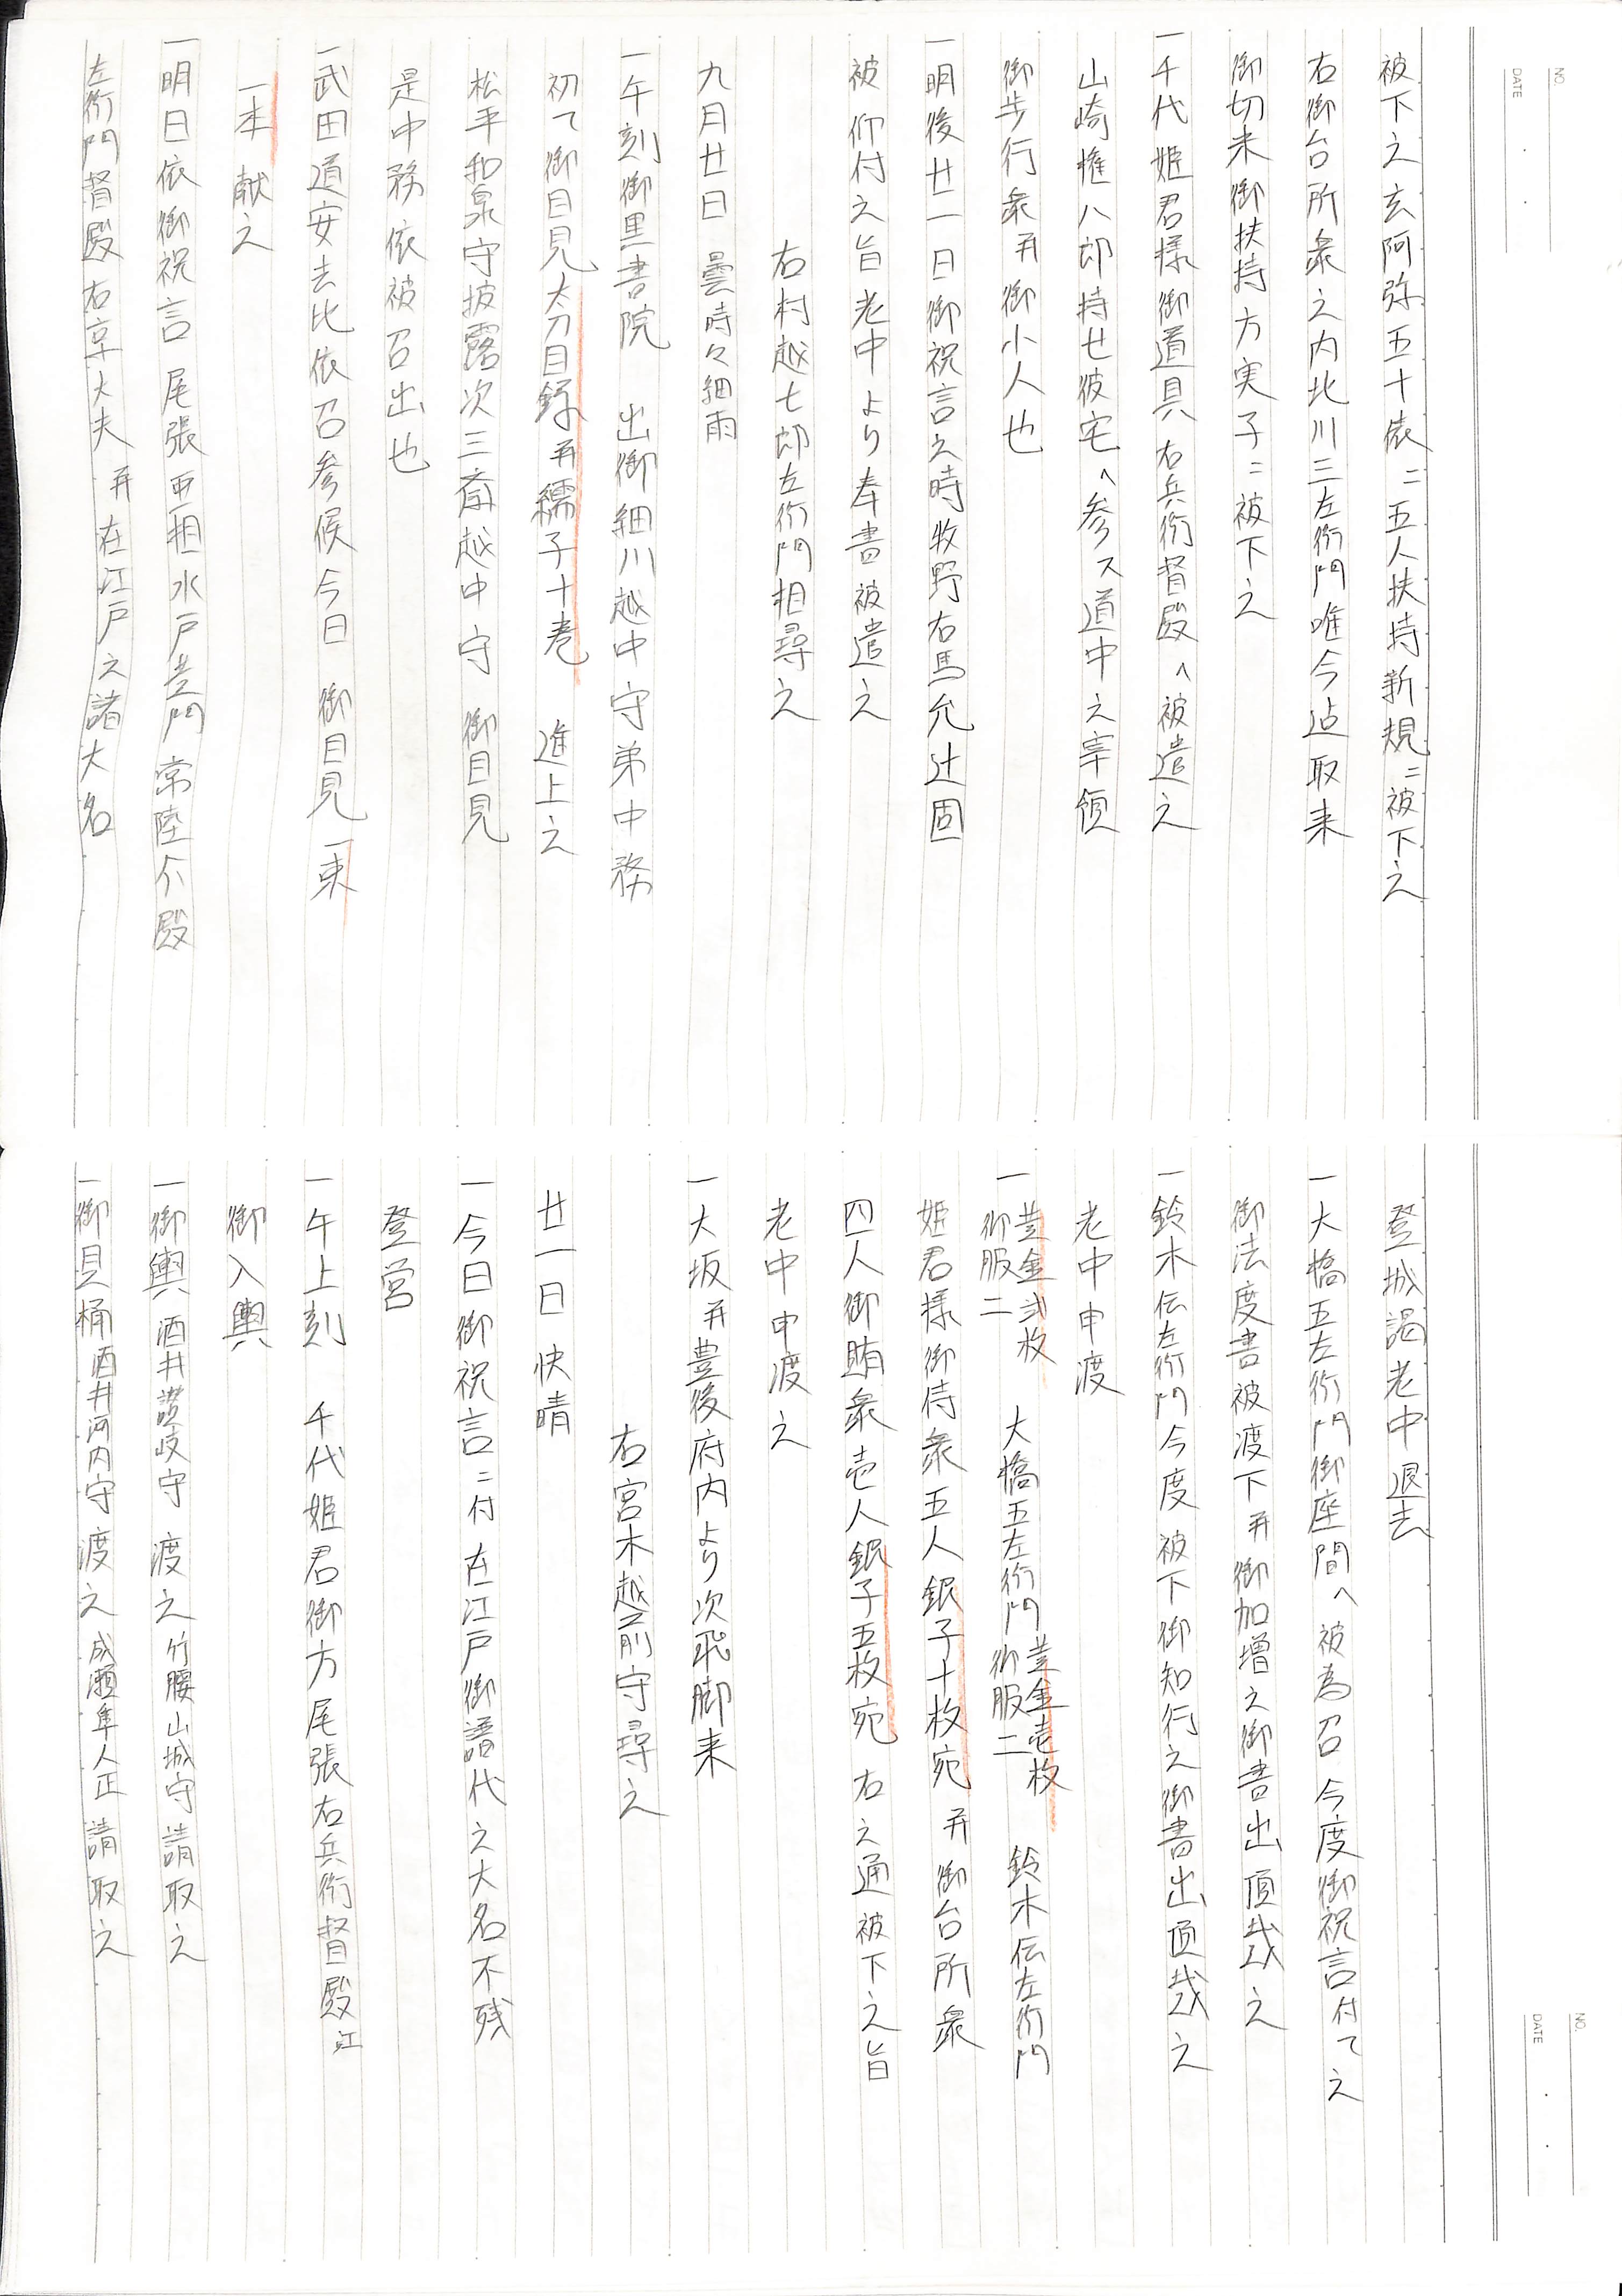 被下之玄阿弥五十俵ニ五人扶持新規ニ被下之
右御台所衆之内北川三左衛門唯今迠取来
御切米御扶持方実子ニ被下之
一千代姫君様御道具右兵衛督殿へ被遣之
山崎権八郎持せ彼宅へ参ス道中之宰領
御歩行衆并御小人也
一明後廿一日御祝言之時牧野右馬允辻固
被仰付之旨老中より奉書被遣之
右村越七郎左衛門相尋之
九月廿日 曇時々細雨
一午刻御黒書院 出御細川越中守弟中務
初て御目見太刀目録并繻子十巻 進上之
松平和泉守披露次三斎越中守 御目見
是中務依被召出也
一武田道安去比依召参候今日 御目見一束
一本献之
一明日依御祝言 尾張亜相水戸黄門常陸介殿
左衛門督殿右京大夫并在江戸之諸大名
登城謁老中退去
一大橋五左衛門御座間へ被為召今度御祝言付て之
御法度書被渡下并御加増之御書出頂戴之
一鈴木伝左衛門今度被下御知行之御書出頂戴之
老中申渡
一黄金弐枚 御服二 大橋五左衛門 黄金壱枚 御服二 鈴木伝左衛門
姫君様御待衆五人銀子十枚宛并御台所衆
四人御賄衆壱人銀子五枚宛右之通被下之旨
老中申渡之
一大坂并豊後府内より次飛脚来
右宮木越前守尋之
廿一日 快晴
一今日御祝言ニ付在江戸御譜代之大名不残
登営
一午上刻 千代姫君御方尾張右兵衛督殿江
御入輿
一御輿酒井讃岐守渡之竹腰山城守請取之
一御貝桶酒井河内守渡之成瀬隼人正請取之
NO.
DATE
NO.
DATE